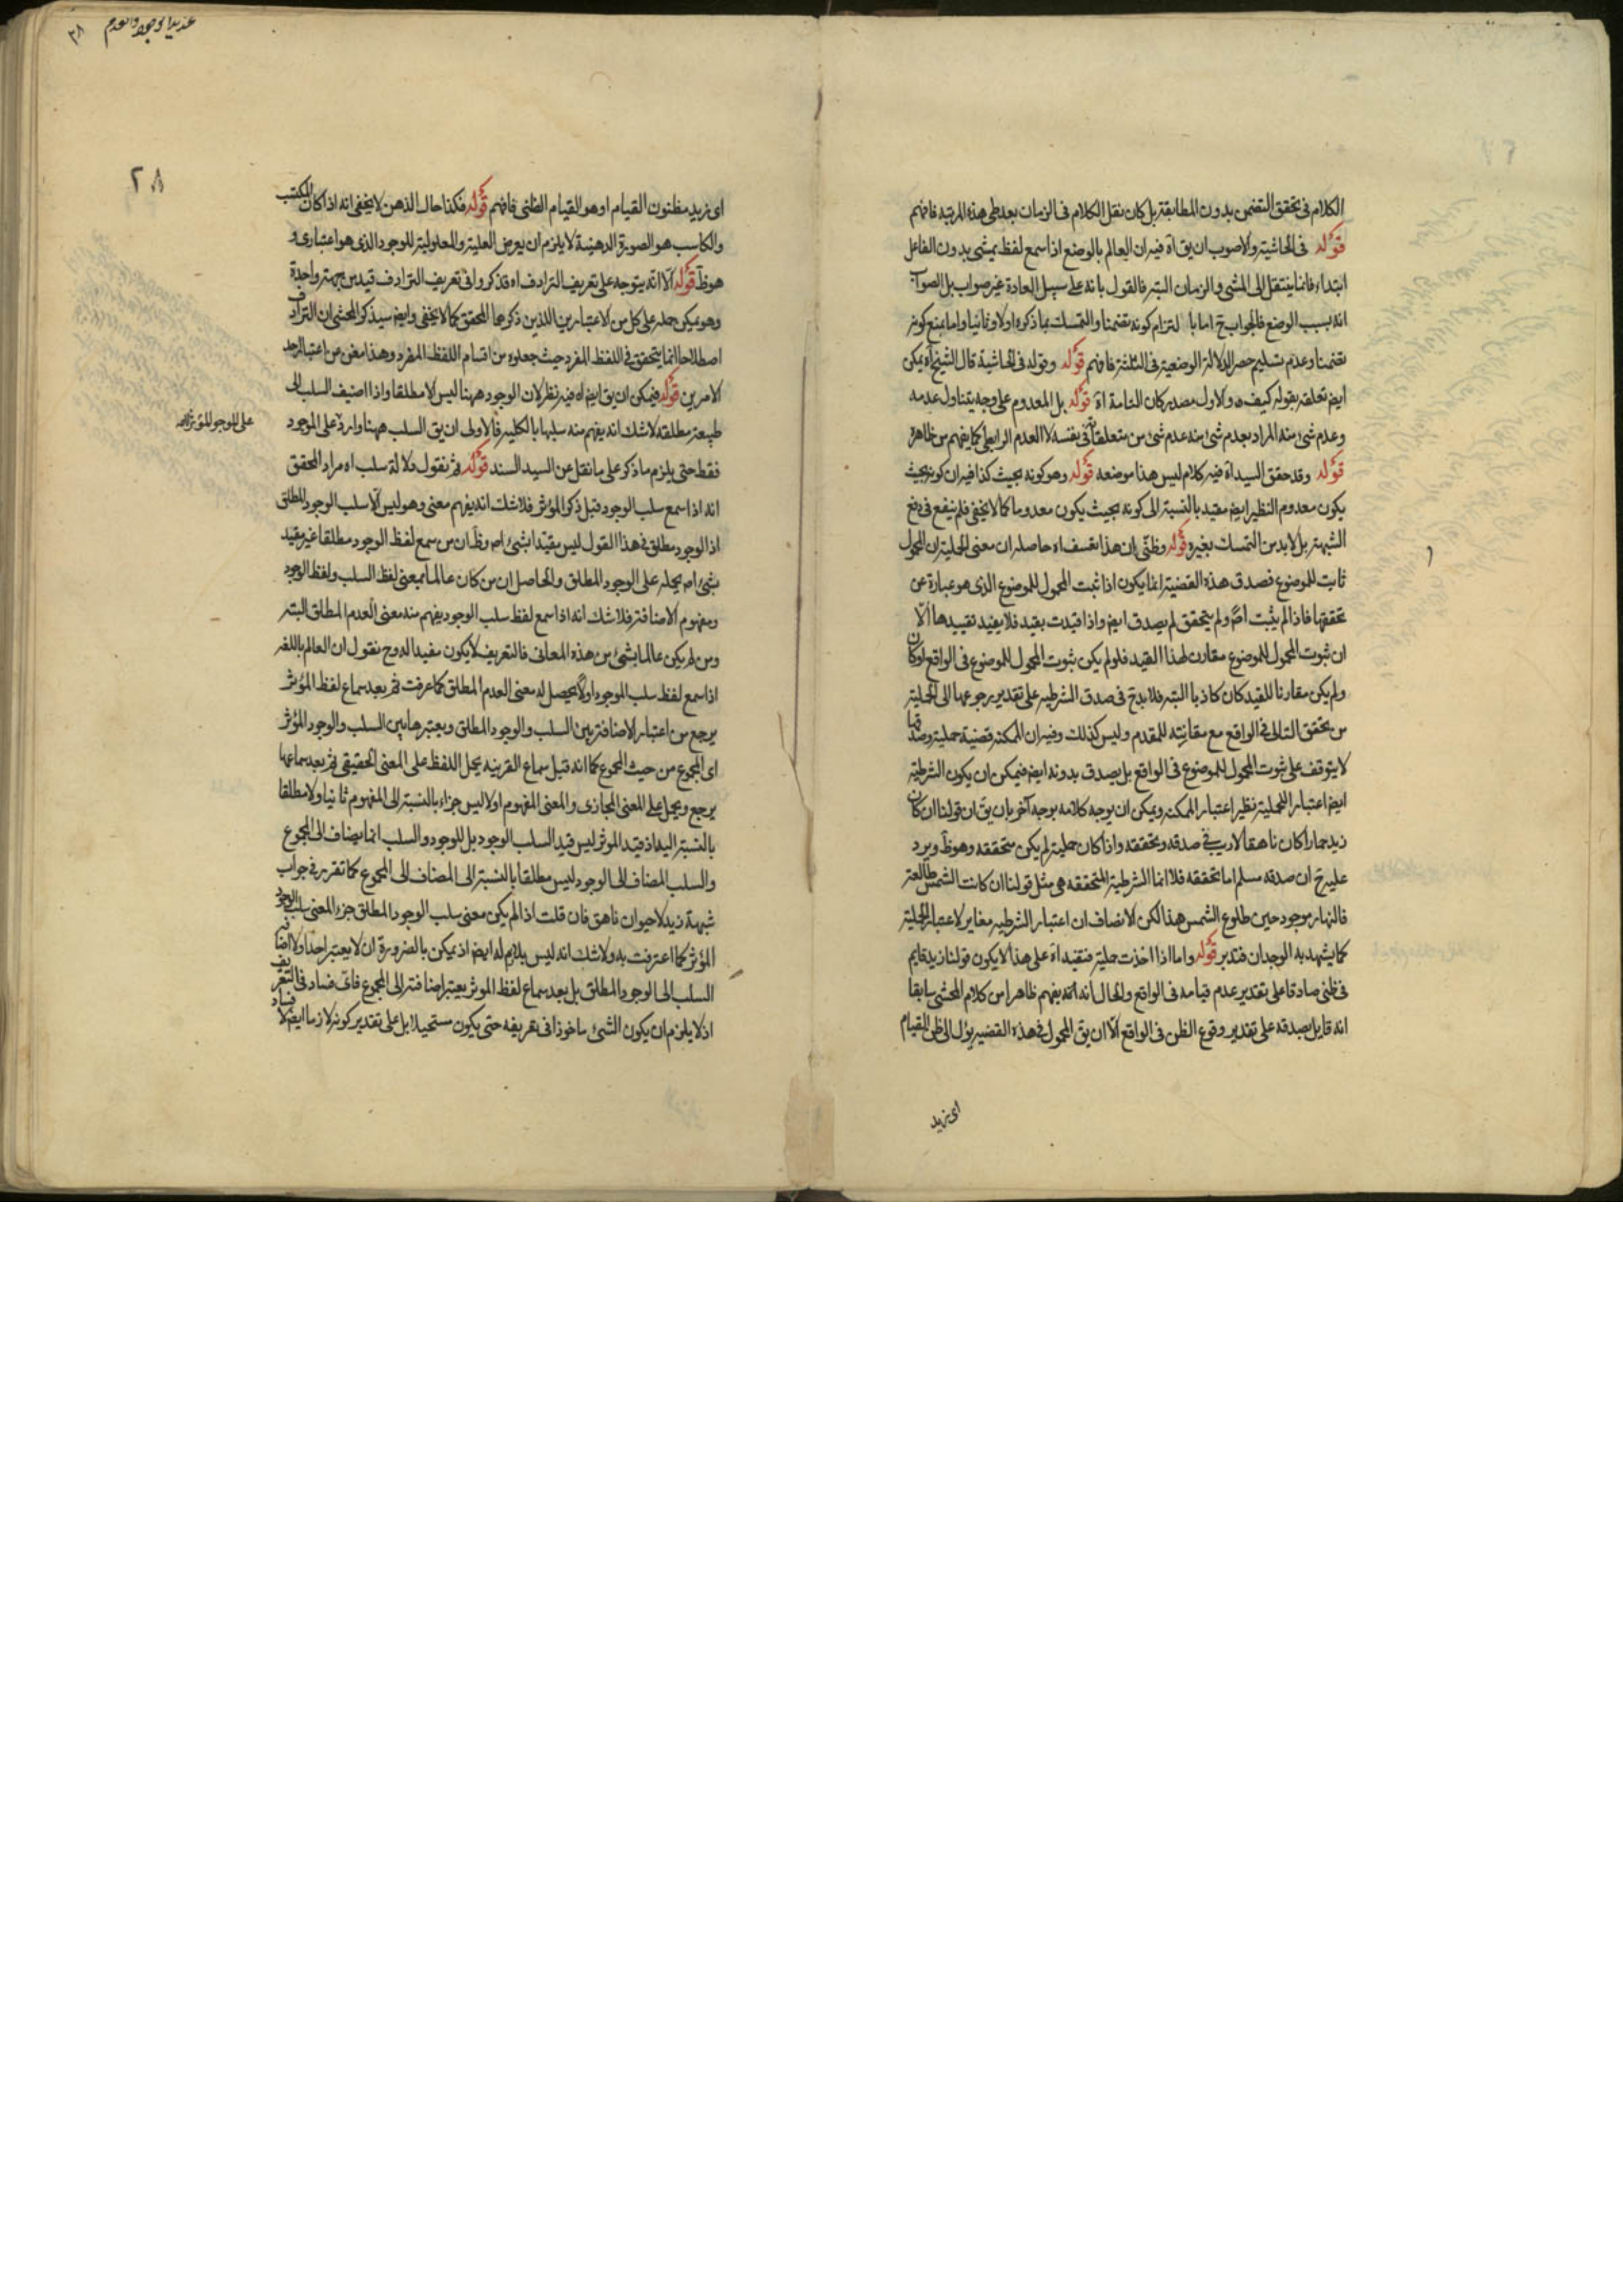 الكلام فى تحقق التضمن بدون المطابقة بل كان نقل الكلام فى الزمان بعد طى هذه المرتبة فافهم
قوله فى الحاشية والاصوب ان يق اه فيه ان العالم بالوضع اذا سمع لفظ يمشى بدون الفاعل
ابتداء فانما ينتقل الى المشى والزمان البتة فالقول بانه على سبيل العادة غير صواب بل الصواب
انه بسبب الوضع فالجواب ح اما با لتزام كونه تضمنا والتمسك بما ذكره اولا وثانيا واما بمنع كونه
تضمنا وعدم تسليم حصر الدلالة الوضعية فى الثلثة فافهم قوله وقوله فى الحاشية قال الشيخ اه يمكن
ايضا تعلقه بقوله كيف ه والاول مصدر كان التامة اه قوله بل المعدوم على وجه يتناول عدمه
وعدم شئ منه المراد بعدم شئ منه عدم شئ من متعلقاته فى نفسه لا العدم الرابطى كما يفهم من ظاهره
قوله وقد حقق السيد اه فيه كلام ليس هذا موضعه قوله وهو كونه بحيث كذا فيه ان كونه بحيث
يكون معدوم النظير ايضا مقيد بالنسبة الى كونه بحيث يكون معدوما كما لا يخفى فلم ينفع فى دفع
الشبهة بل لا بد من التمسك بغيره قوله وظنى ان هذا تعسف اه حاصله ان معنى الحملية ان المحمول
ثابت للموضوع فصدق هذه القضية انما يكون اذا ثبت المحمول للموضوع الذى هو عبارة عن
تحققها فاذا لم يثبت اصلا ولم يتحقق لم يصدق ايضا واذا قيدت بقيد فلا يفيد تقييدها الا
ان ثبوت المحمول للموضوع مقارن لهذا القيد فلو لم يكن ثبوت المحمول للموضوع فى الواقع او كان
ولم يكن مقارنا للقيد كان كاذبا البتة فلا بد ح فى صدق الشرطية على تقدير رجوعها الى الحملية
من تحقق التالى فى الواقع مع مقارنته للمقدم وليس كذلك وفيه ان الممكنة قضية حملية وصدقها
لا يتوقف على ثبوت المحمول للموضوع فى الواقع بل يصدق بدونه ايضا فيمكن ان يكون الشرطية
ايضا اعتبار الحملية نظير اعتبار الممكنة ويمكن ان يوجه كلامه بوجه آخر بان يق ان قولنا ان كان
زيد حمارا كان ناهقا لا ريب فى صدقه وتحققه واذا كان حملية لم يكن متحققه وهو ظ ويرد
عليه ح ان صدقه مسلم اما تحققه فلا انما الشرطية المتحققه هى مثل قولنا ان كانت الشمس طالعة
فالنهار موجود حين طلوع الشمس هذا لكن الانصاف ان اعتبار الشرطية مغاير لاعتبار الحملية
كما يشهد به الوجدان فتدبر قوله واما اذا اخذت حملية فتقيد اه على هذا لا يكون قولنا زيد قايم
فى ظنى صادقا على تقدير عدم قيامه فى الواقع والحال انه انه يفهم ظاهرا من كلام المحشى سابقا
انه قايل بصدقه على تقدير وقوع الظن فى الواقع الا ان يق المحمول فى هذه القضية يؤل الى ظن القيام
اى زيد
عند يد الوجود والعدم
٣٨
٢٨
اى زيد مظنون القيام او هو القيام الظنى فافهم قوله فكذا حال الذهن لا يخفى انه اذا كان المكتسب
والكاسب هو الصورة الذهنية لا يلزم ان يعرض العلية والمعلولية للوجود الذى هو اعتبارى و
هو ظ قوله الا انه يتوجه على تعريف الترادف اه قد ذكروا فى تعريف الترادف قيد من جهة واحدة
وهو يمكن حمله على كل من الاعتبارين اللذين ذكرهما المحقق كما لا يخفى وايضا سيذكر المحشى ان الترادف
اصطلاحا انما يتحقق فى اللفظ المفرد حيث جعلوه من اقسام اللفظ المفرد وهذا مغن عن اعتبار احد
الامرين قوله فيمكن ان يق ايضا اه فيه نظر لان الوجود ههنا ليس الا مطلقا واذا اضيف السلب الى
طبيعة مطلقه لا شك انه يفهم منه سلبها بالكلية فالاولى ان يق السلب ههنا وارد على الموجود
على الموجود المؤثر لا
فقط حتى يلزم ما ذكر على ما نقل عن السيد السند قوله ثم نقول دلالة سلب اه مراد المحقق
انه اذا سمع سلب الوجود قبل ذكر المؤثر فلا شك انه يفهم معنى وهو ليس الا سلب الوجود المطلق
اذ الوجود مطلق فى هذا القول ليس مقيدا بشئ اصلا وظ ان من سمع لفظ الوجود مطلقا غير مقيد
بشئ اصلا يحمله على الوجود المطلق والحاصل ان من كان عالما بمعنى لفظ السلب ولفظ الوجود
ومفهوم الاضافة فلا شك انه اذا سمع لفظ سلب الوجود يفهم منه معنى العدم المطلق البتة
ومن لم يكن عالما بشئ من هذه المعانى فالتعريف لا يكون مفيدا له وح نقول ان العالم باللغة
اذا سمع لفظ سلب الوجود اولا يحصل له معنى العدم المطلق كما عرفت ثم بعد سماع لفظ المؤثر
يرجع من اعتبار الاضافة بين السلب والوجود المطلق ويعتبرها بين السلب والوجود المؤثر
اى المجموع من حيث المجموع كما انه قبل سماع القرينة يحمل اللفظ على المعنى الحقيقى ثم بعد سماعها
يرجع ويحمل على المعنى المجازى والمعنى المفهوم اولا ليس جزءا بالنسبة الى المفهوم ثانيا ولا مطلقا
بالنسبة اليه اذ قيد المؤثر ليس قيد السلب الوجود بل للوجود والسلب انما يضاف الى المجموع
والسلب المضاف الى الوجود ليس مطلقا بالنسبة الى المضاف الى المجموع كما تقرر فى جواب
شبهة زيد لا حيوان ناهق فان قلت اذا لم يكن معنى سلب الوجود المطلق جزء المعنى سلب الوجود
المؤثر كما اعترفت به ولا شك انه ليس بلازم له ايضا اذ يمكن بالضرورة ان لا يعتبر احدا ولا اضافة
السلب الى الوجود المطلق بل بعد سماع لفظ الموثر يعتبر اضافة الى المجموع فاى فساد فى التعريف
اذ لا يلزم ان يكون الشئ ماخوذا فى تعريفه حتى يكون مستحيلا بل على تقدير كونه لازما ايضا لا فساد